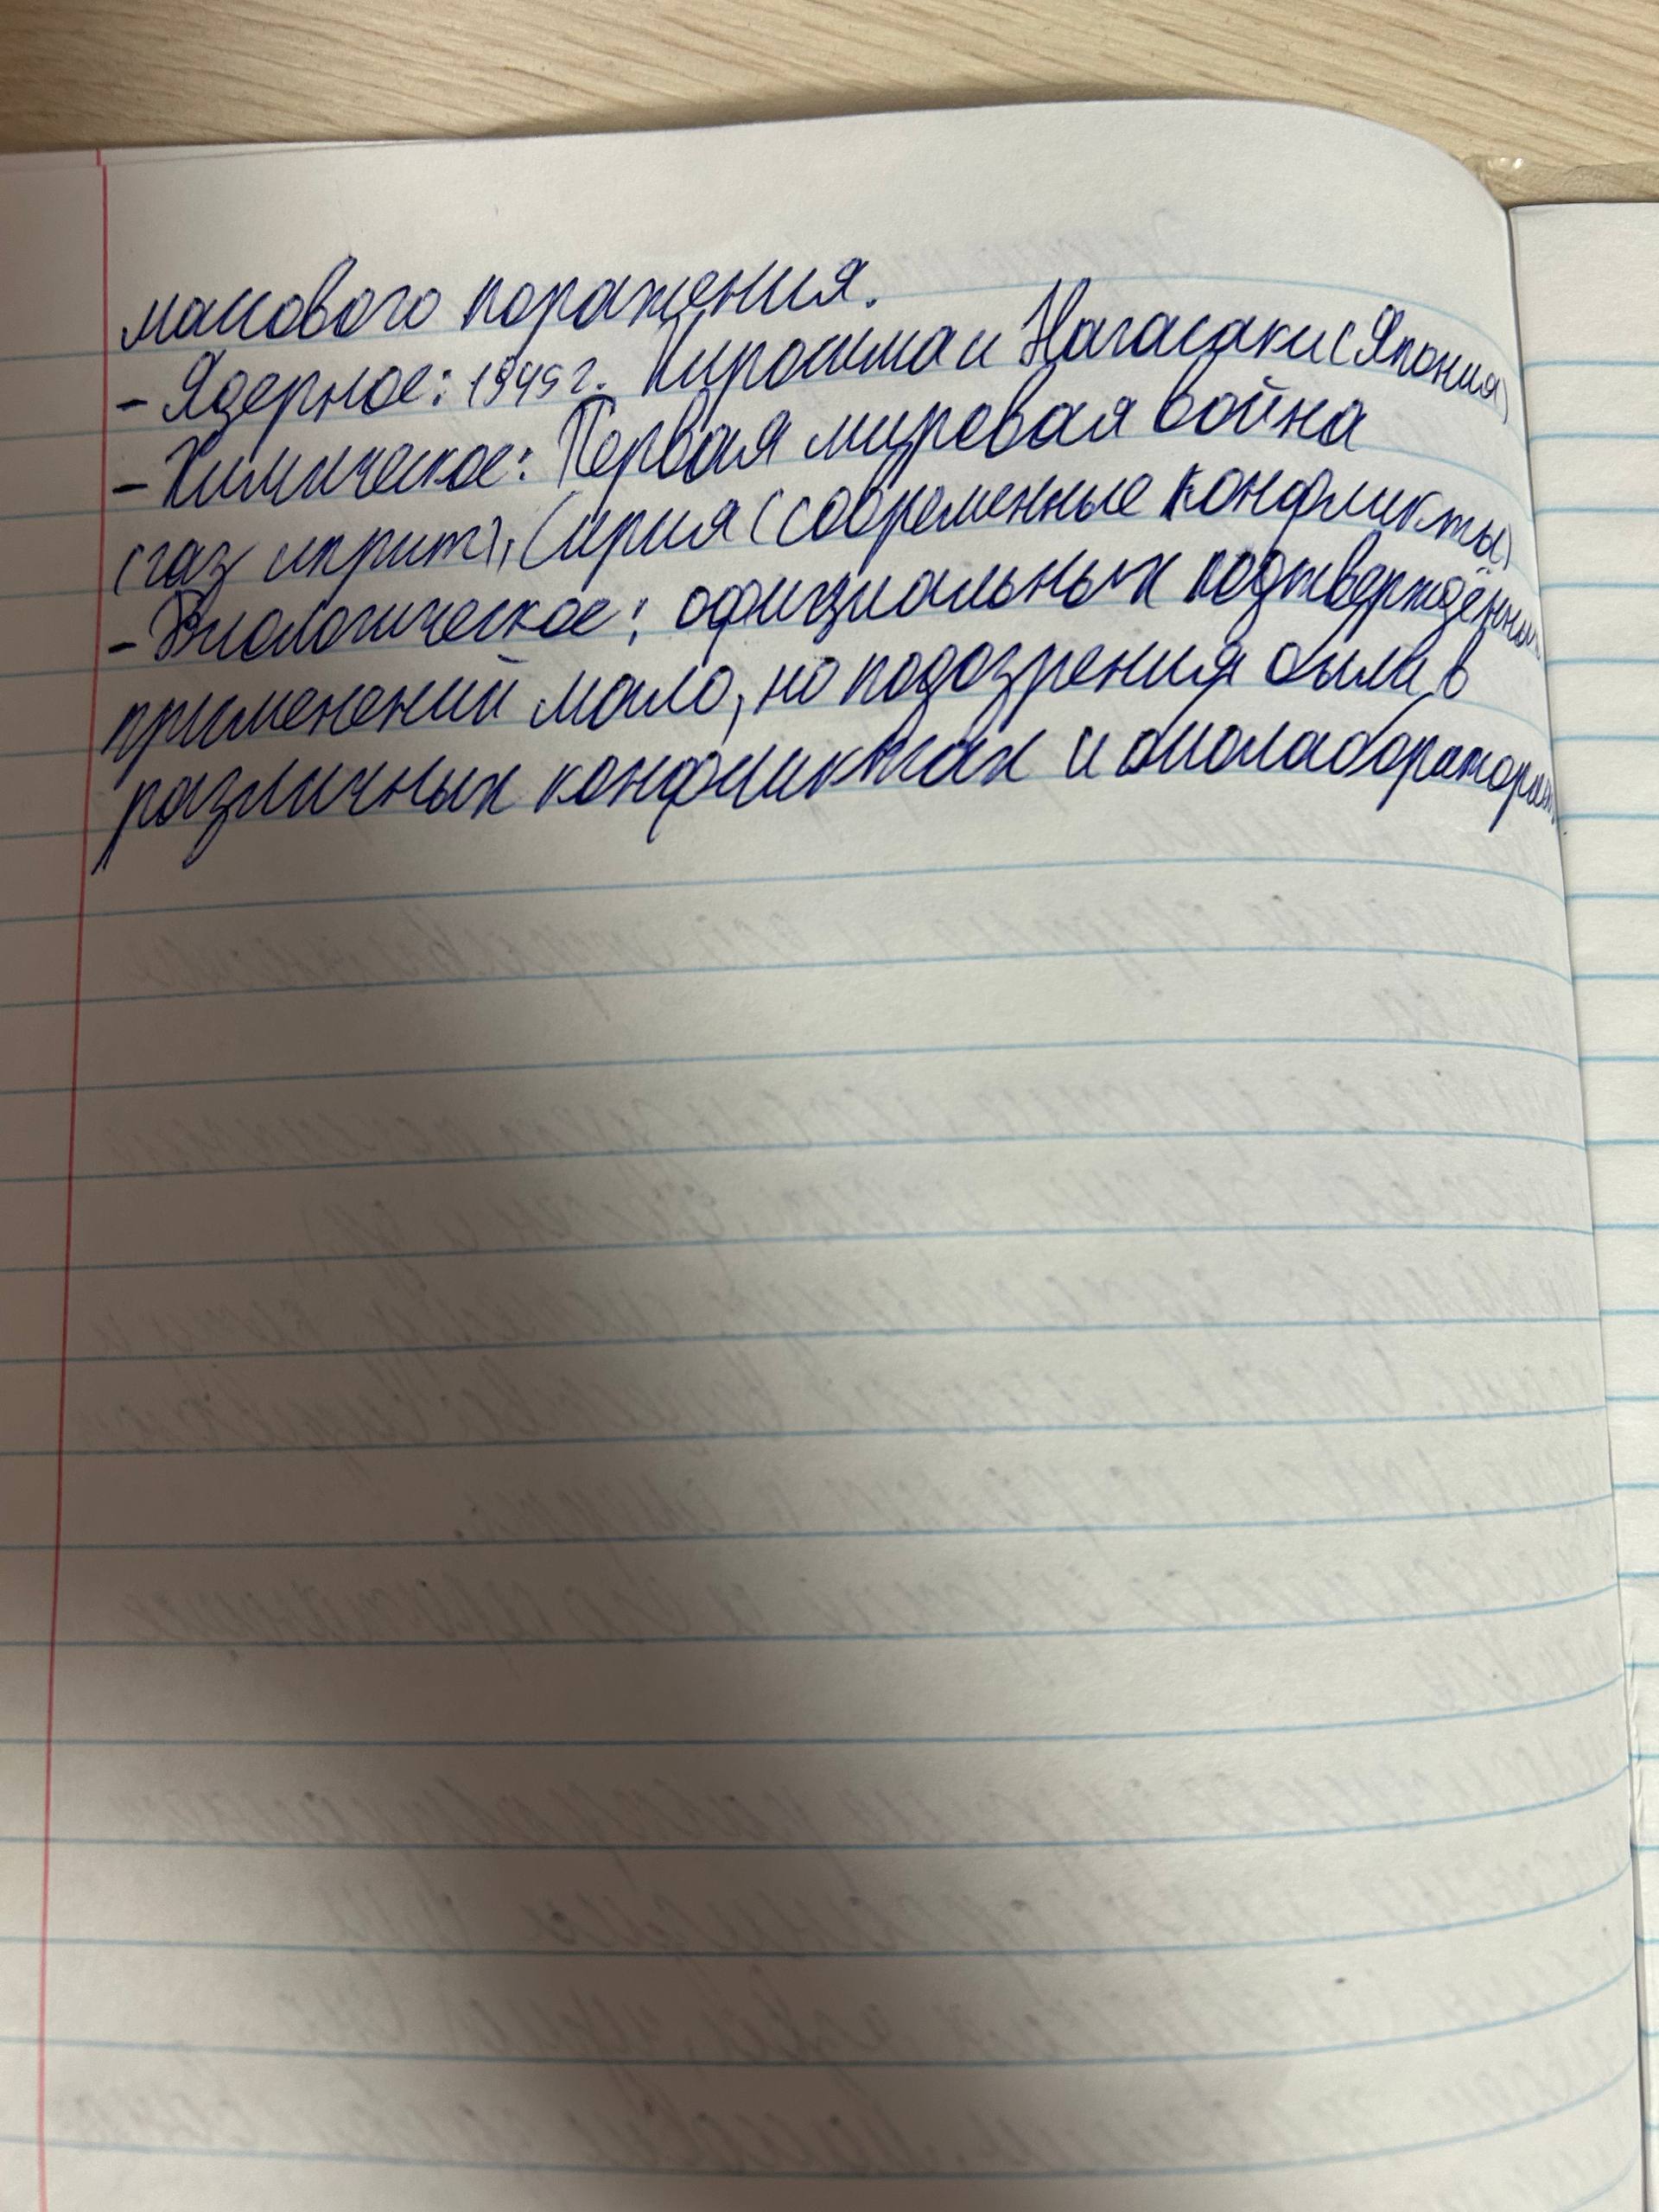 масового поражения.
- Ядерное: 1945г. Хиросима и Нагасаки (Япония)
- Химическое: Первая мировая война
(газ иприт), Сирия (современные конфликты)
- Биологическое: официальных подтверждённых
применений мало, но подозрения были в
различных конфликтах и биолабораториях.